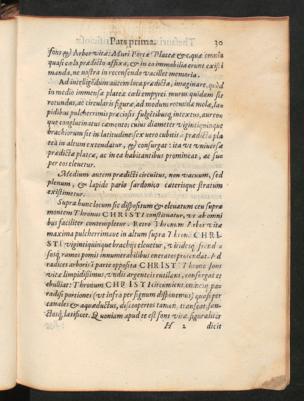 Pars prima. 30
fons & Arbor vitæ: Muri Portæ Plateæ & c. quæ omnia
quasi cælo prædicto affixa, & in eo immobilia erunt existi
manda, ne nostra in recensendo vacillet memoria.
Ad intelligendum autem loca prædicta, imaginare, quod
in medio immensæ plateæ cæli empyrei murus quidem sit
rotundus, ac circularis figuræ, ad modum rotundæ molæ, la-
pidibus pulcherrimis preciosis fulgētibusq; intextus, auro eos
que conglutinat cæmento; cuius diameter viginti quinque
brachiorum sit in latitudine: sex vero cubitis à prædicta pla
tea in altum extendatur, & consurgat: ita vt vniuersæ
prædictæ plateæ, ac in ea habitantibus promineat, ac sua-
per extet
Medium autem prædicti circuitus, non vacuum, sed
plenum, & lapide pario sardonico cæterisque stratum
existimetur.
Supra hunc locum sic dispositum & eleuatum ceu supra
montem Thronus CHRISTI constituatur, vt ab omni
bus faciliter contempletur. Retro Thronum Arbor vitæ
maxima pulcherrimaque in altum supra Thronum CHRI-
STI viginti quinque brachijs eleuetur,
ramos pomis innumerabilibus oneratos
radices arboris à parte opposita CHRISTI Throno fons
vitæ limpidissimus, vndis argenteis rutilans, consurgat et
ebulliat: Thronum CHRISTI
radisi portiones (vt infra per signum disponemus) quasi per
canales & aquæductus, discoopertos tamen, transeat, san-
ctosq; lætificet. Quoniam apud te est fons vitæ figuraliter
H 2 dicit